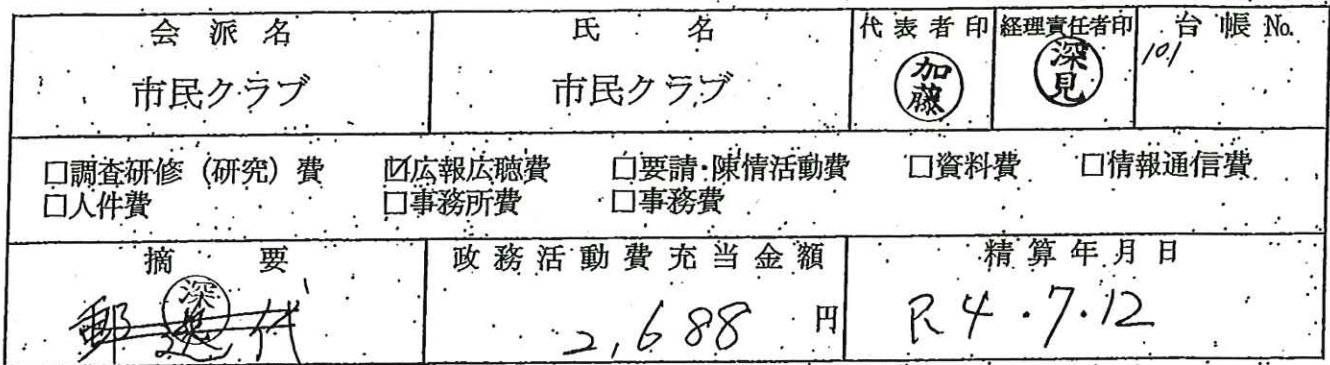 会派名 氏名 代表者印 経理責任者印 台帳No.
市民クラブ 市民クラブ 加藤 深見 101
□調査研修（研究）費 ☑広報広聴費 □要請・陳情活動費 □資料費 □情報通信費
□人件費 □事務所費 □事務費
摘要 政務活動費充当金額 精算年月日
郵送代 深見 2,688円 R4.7.12